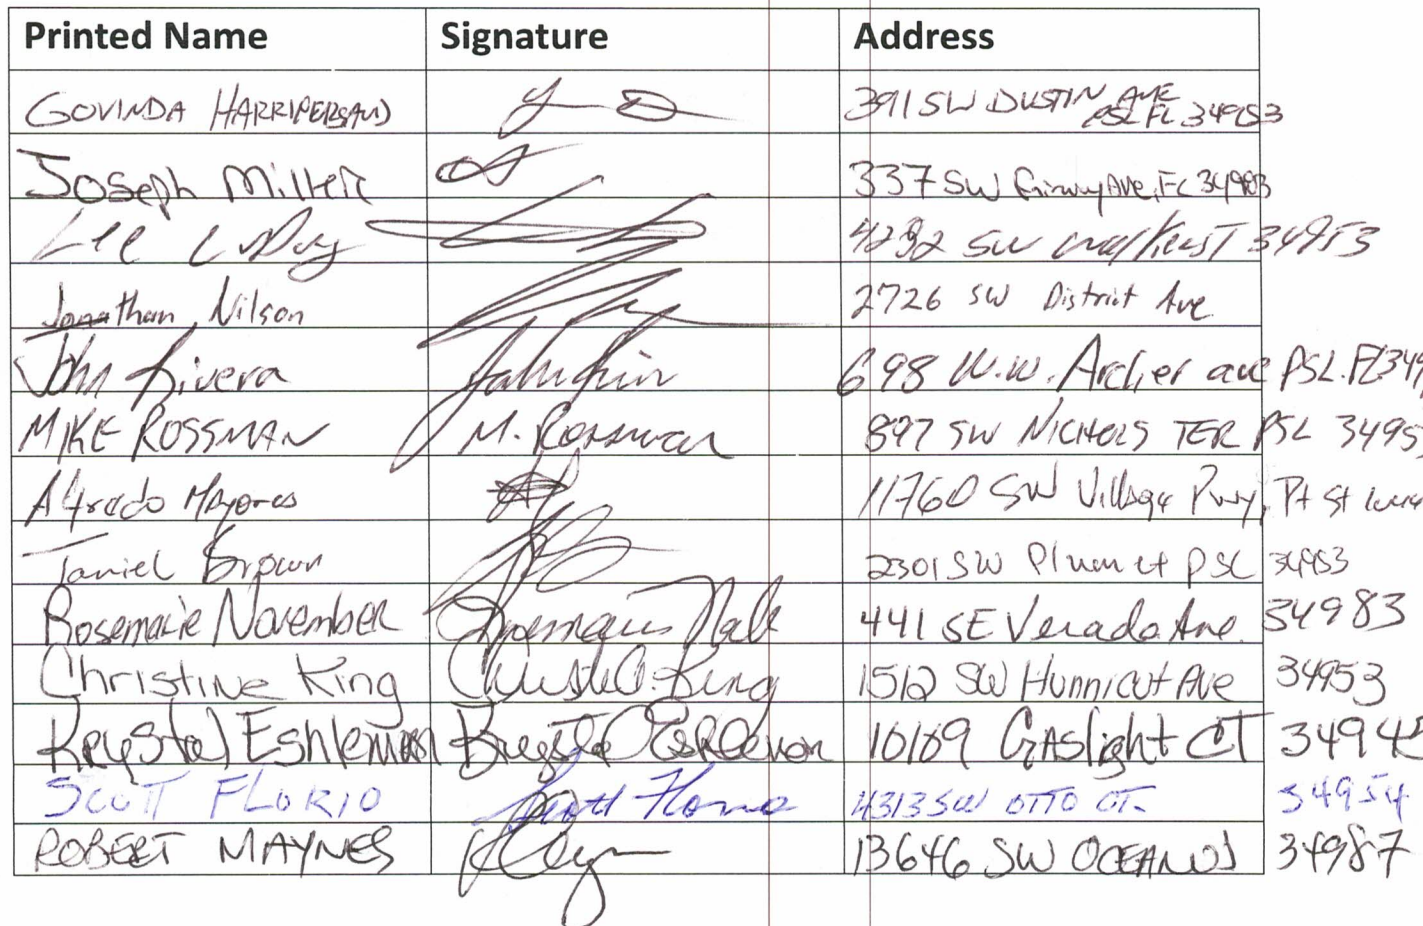 Printed Name Signature Address
GOVINDA HARRIPERSAUD 391 SW DUSTIN AVE
PSL FL 34953
Joseph Miller 337 SW Ave, FL 34983
Lee 4292 SW 34953
Jonathan Nilson 2726 SW District Ave
John Rivera John 698 W.W. Archer ave PSL. FL 349
MIKE ROSSMAN M. Rossman 897 SW NICHOLS TER PSL 34953
Alfredo Mayorea 11760 SW Village Pwy, Pt St Lucie
Taniel Brown 2301 SW Plum ct PSL 34953
Rosemarie November 441 SE Verada Ave. 34983
Christine King King 1512 SW Hunnicut Ave 34953
Krystal Eshleman Eshleman 10109 Gaslight CT 34945
SCOTT FLORIO Scott Florio 4313 SW OTTO CT. 34954
ROBERT MAYNES 13646 SW OCEANUS 34987